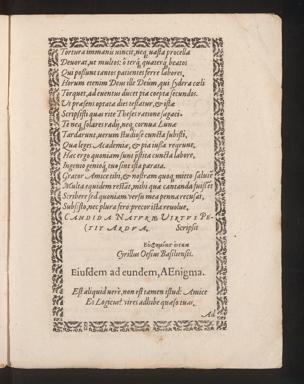 Tortura immanis uincit, neq; uasta procella
Deuorat, ut multos: ô terq́; quaterq́; beatos
Qui possunt tantos patienter ferre labores,
Horum etenim Deus ille Deûm, qui sydera cœli
Torquet, ad euentus ducet pia cœpta secundos.
Ut præsens optata dies testatur, & istæ
Scripsisti quas rite Theses ratione sagaci.
Te neq; solares radij, neq; cornua Lunæ
Tardarunt, uerum studijs cuncta subisti,
Qua leges Academiæ, & pia iussa regrunt,
Hac ergo quoniam sunt præstita cuncta labore,
Ingenio genitoq́; tuo sint ista parata.
Grator Amice tibi, & nostram quoq; mitto salutē
Multa equidem restāt, mihi quæ cantanda fuissēt
Scribere sed quoniam uersu mea penna recusat,
Subsisto, nec plura fero precor ista reuolue,
CANDIDA NATURÆ VIRTUS PE-
TIT ARDVA. Scripsit
Cyrillus Oesius Basiliensis.
Eiusdem ad eundem, AEnigma.
Est aliquid uerè, non est tamen istud: Amice
Et Logicus! uires adhibe quæso tuas,
Ad